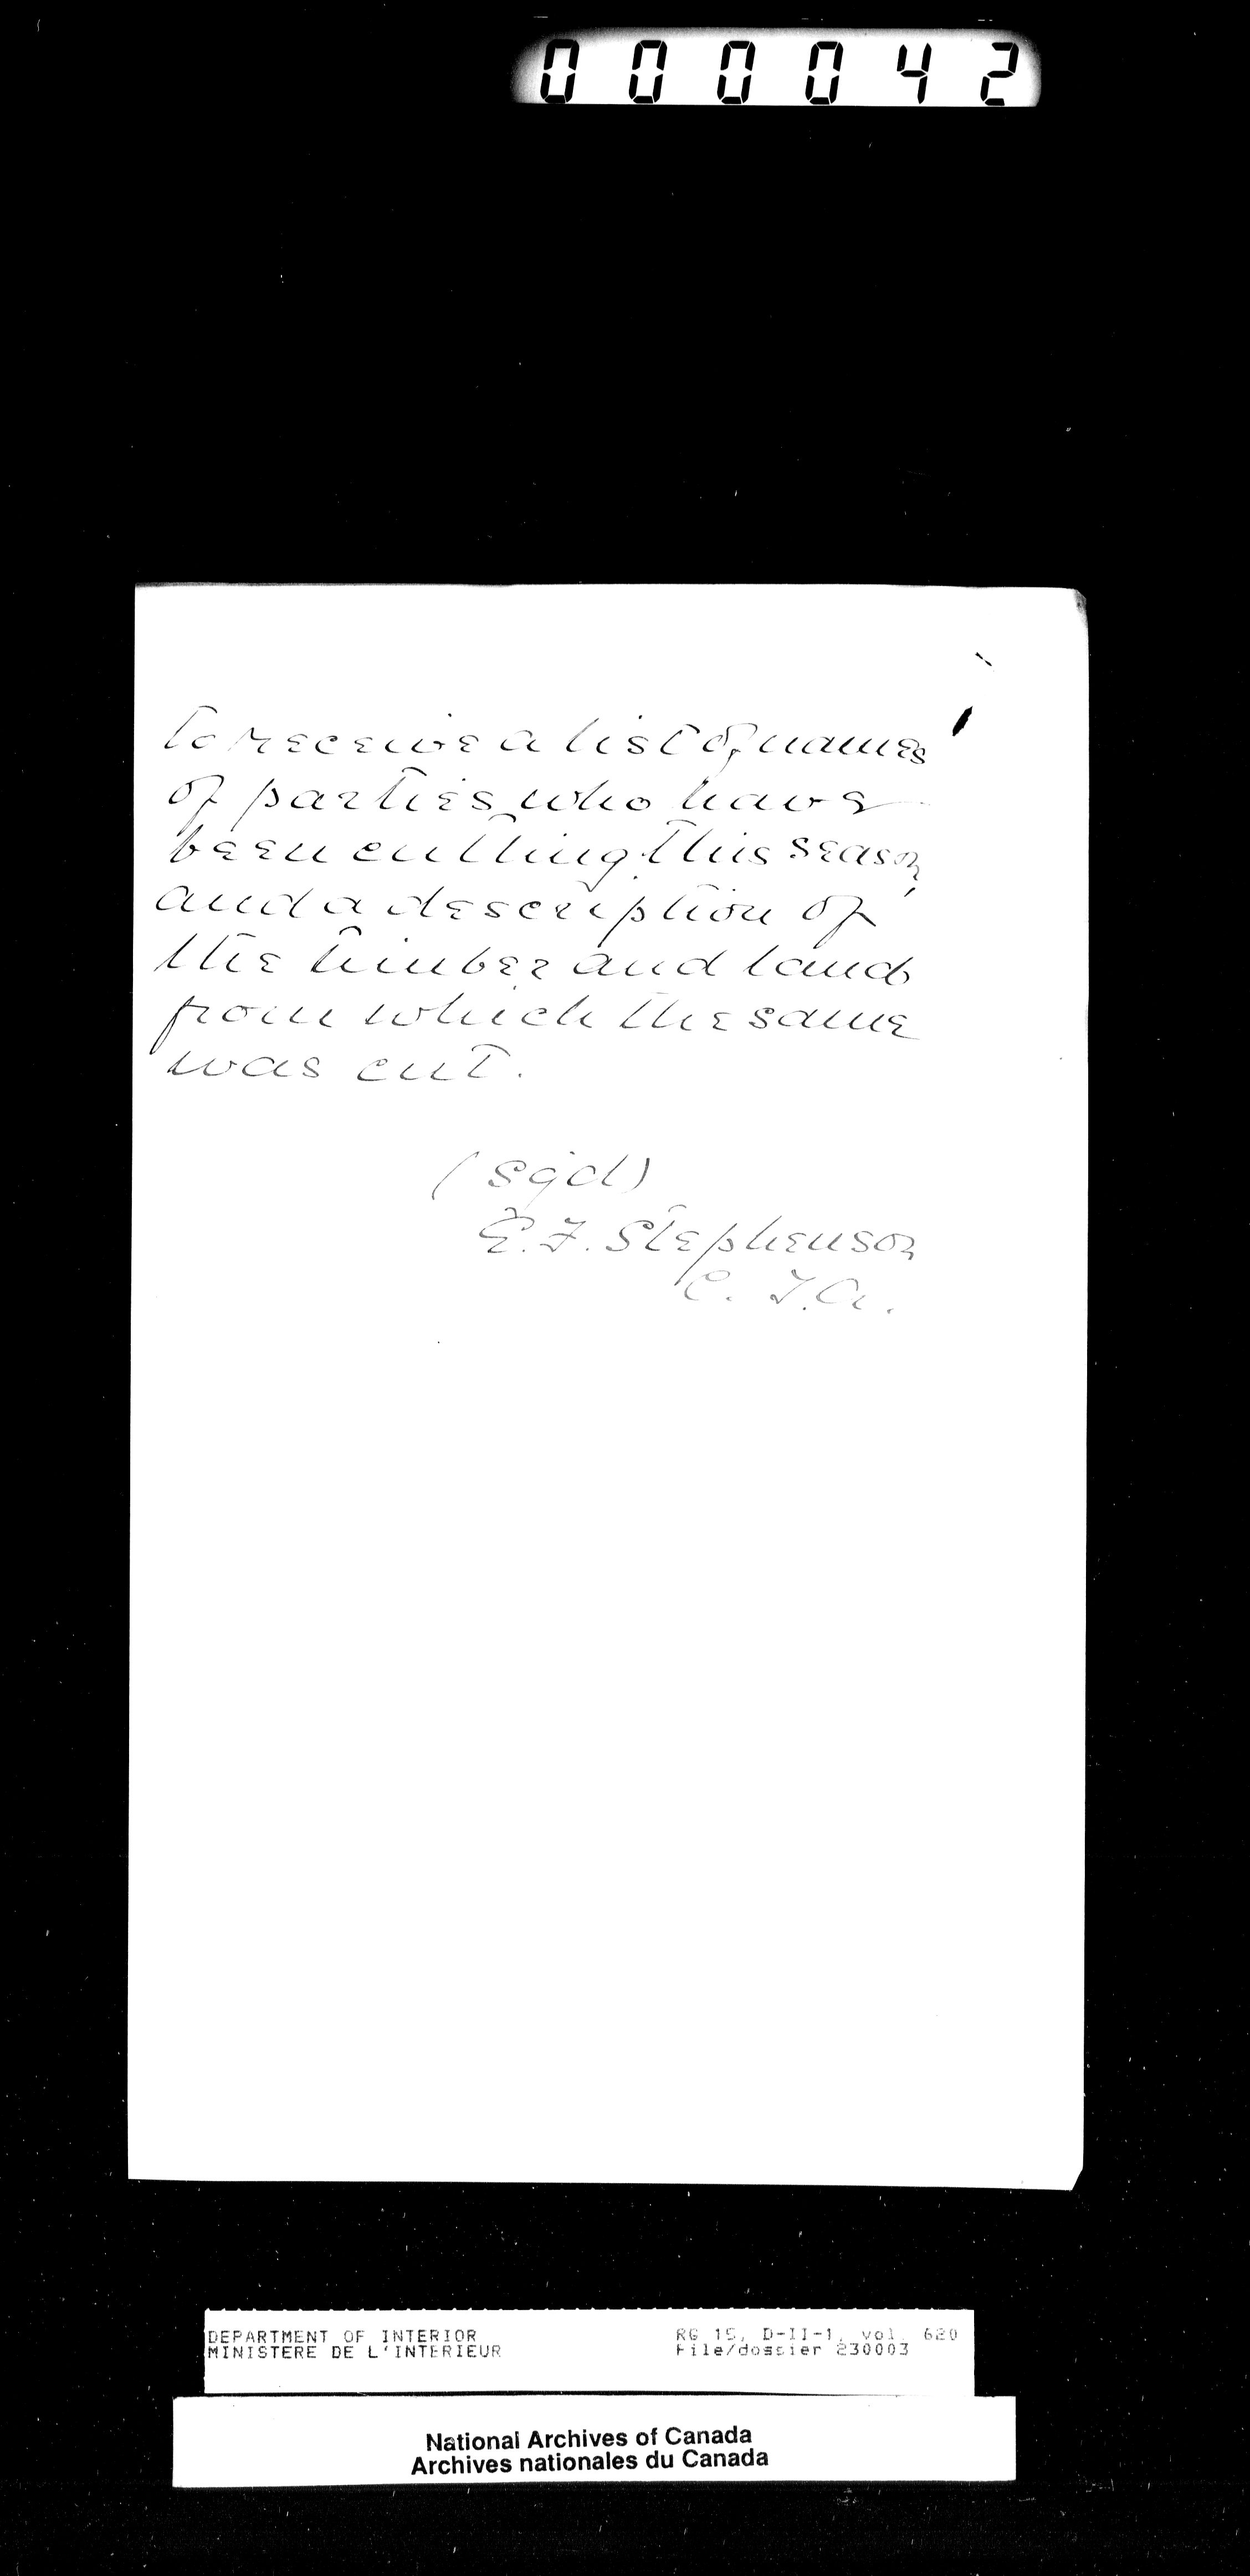 000042
to receive a list of names
of parties who have
been cutting this season,
and a description of
the timber and land
from which the same
was cut.
(sgd)
E. F. Stephenson
C. T. A.
DEPARTMENT OF INTERIOR
MINISTERE DE L'INTERIEUR
RG 15, D-II-1, vol. 620
File/dossier 230003
National Archives of Canada
Archives nationales du Canada